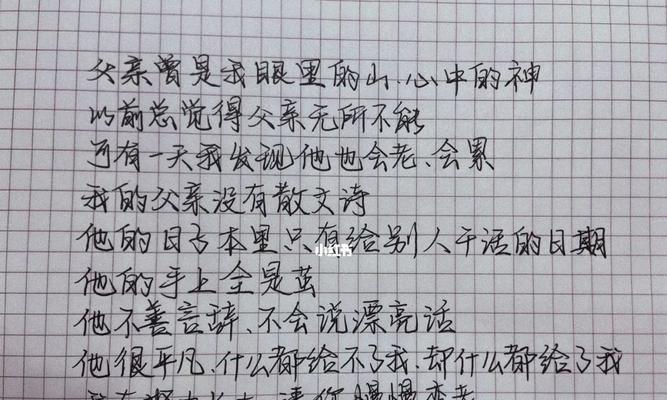 父亲曾是我眼里的山、心中的神
以前总觉得父亲无所不能
可有一天我发现他也会老、会累
我的父亲没有散文诗
他的日子本里只有给别人干活的日期
小红书
他的手上全是茧
他不善言辞、不会说漂亮话
他很平凡、什么都给不了我、却什么都给了我